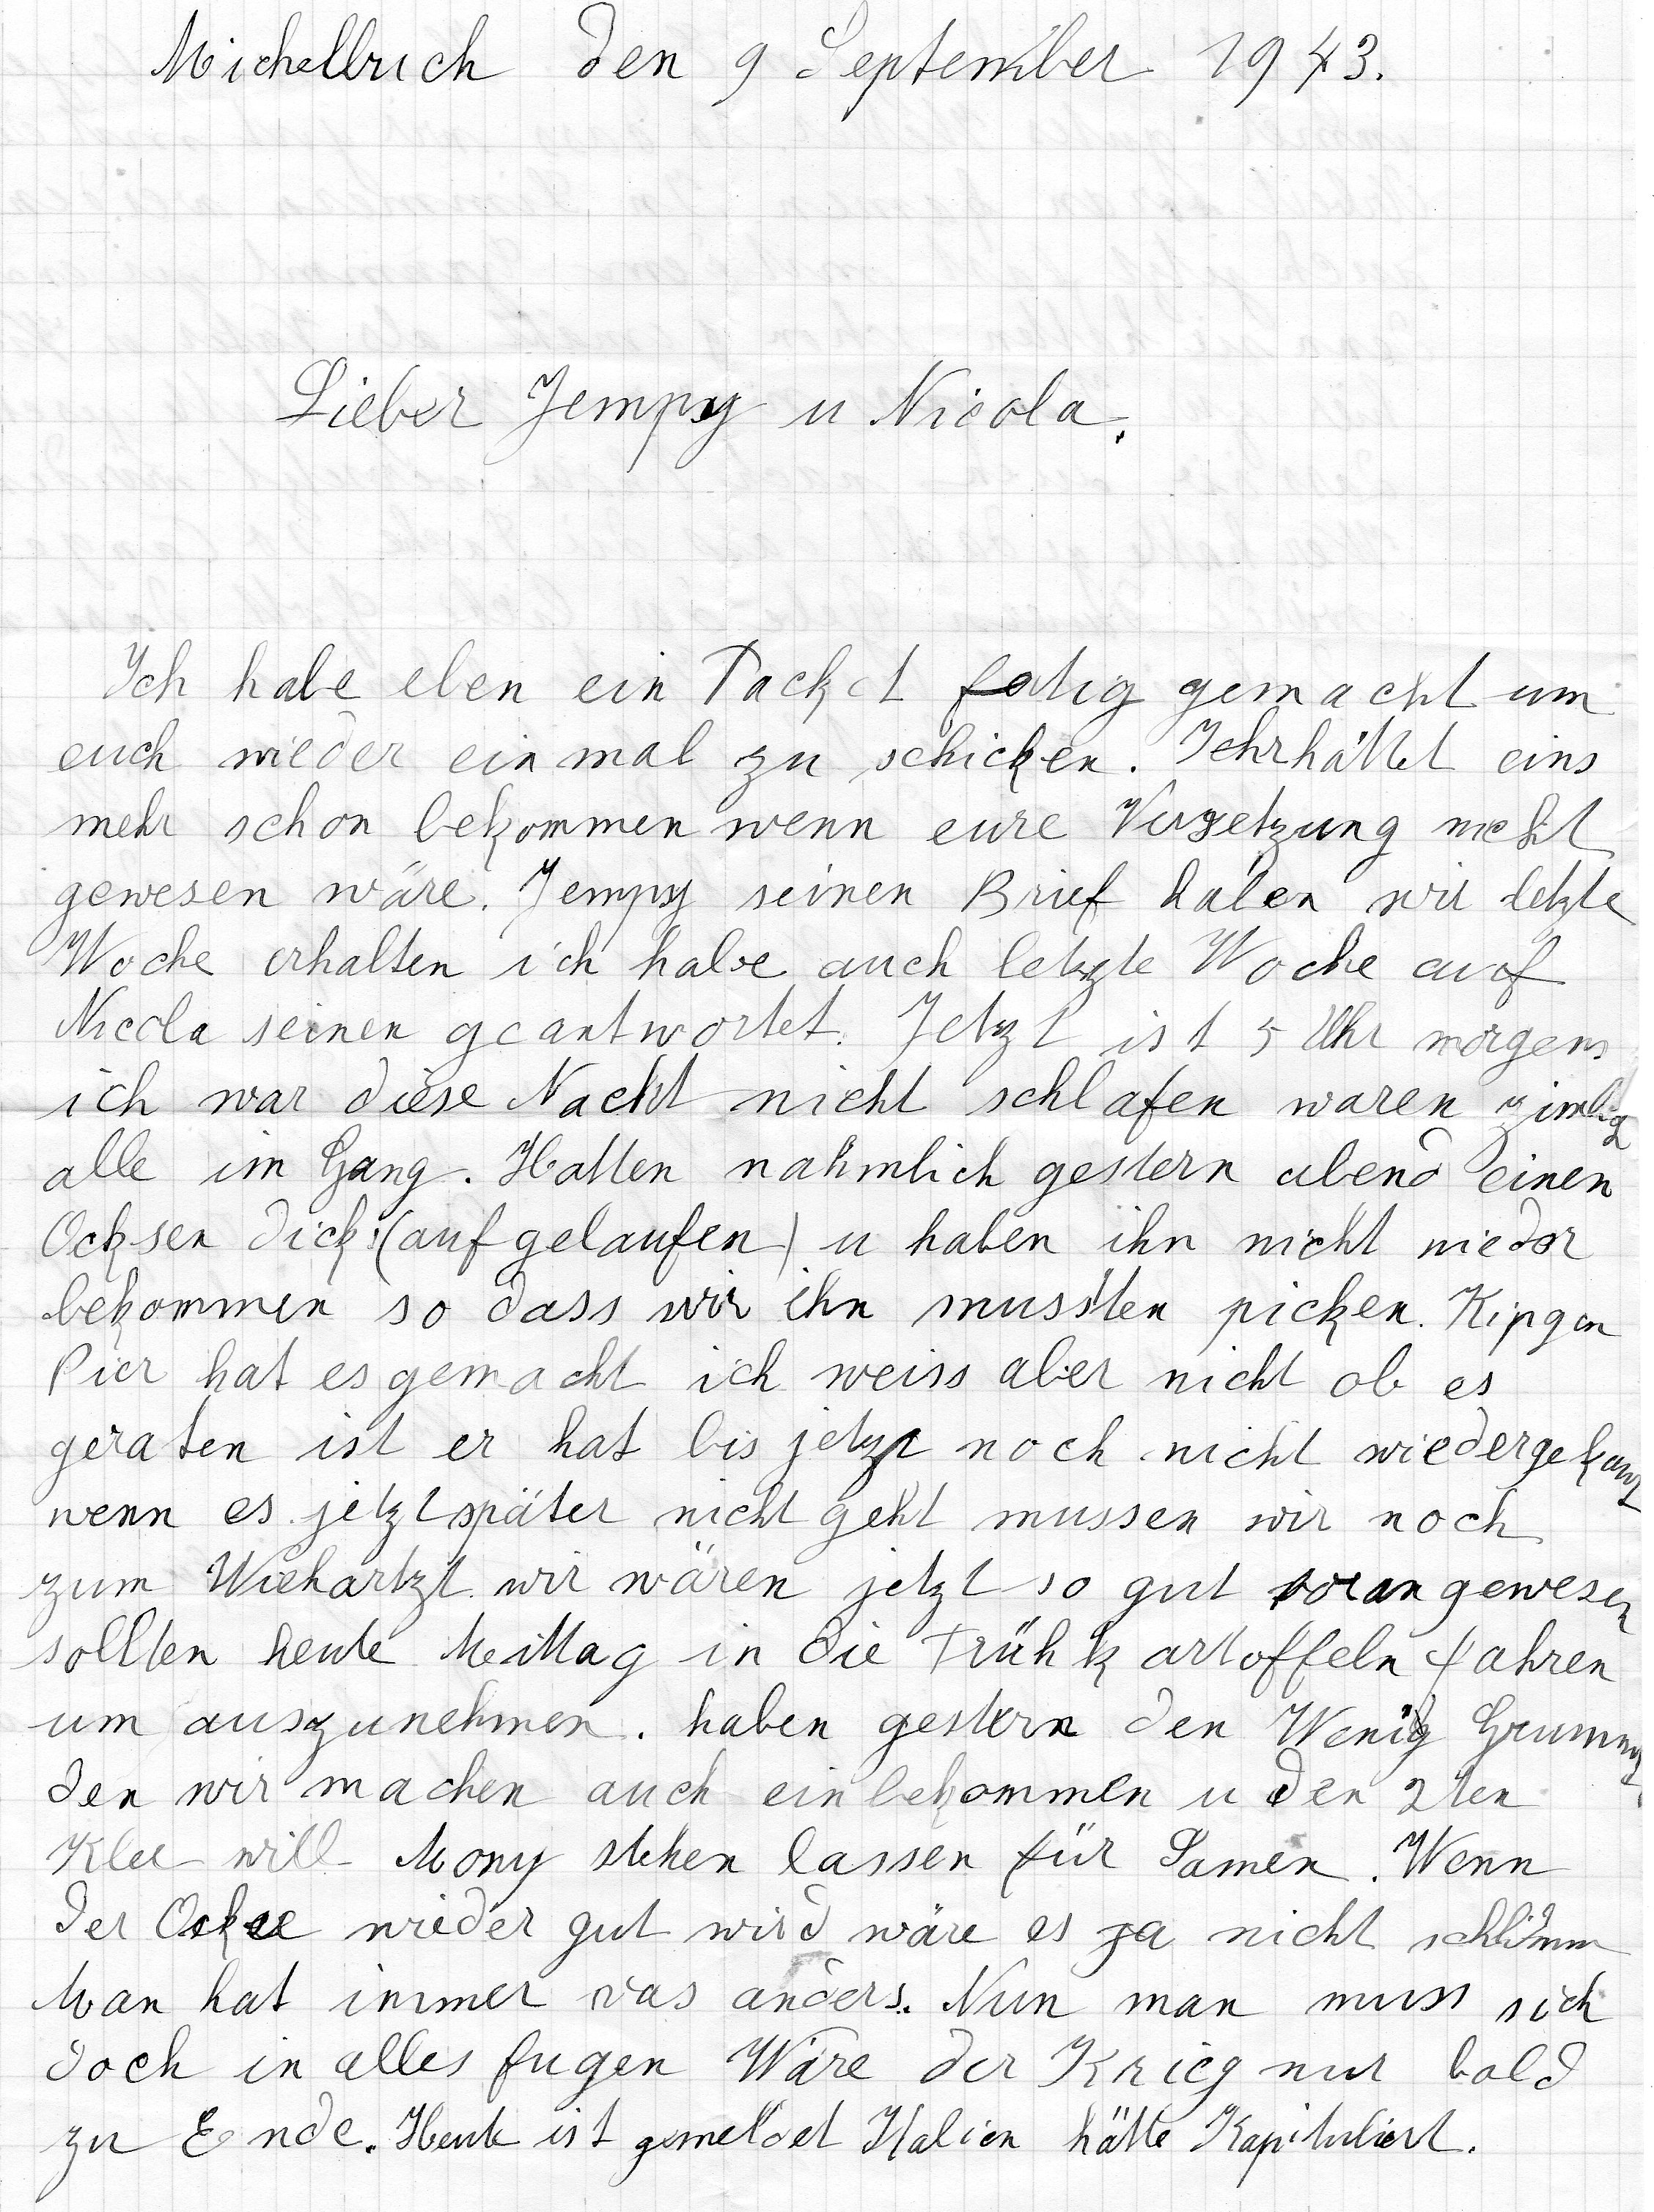 Michelbuch den 9 September 1943.
Lieber Jempy u Nicola.
Ich habe eben ein Packet fertig gemacht um
euch wieder einmal zu schicken. Ihr hättet eins
mehr schon bekommen wenn eure Versetzung nicht
gewesen wäre. Jempy seinen Brief haben wir letzte
Woche erhalten ich habe auch letzte Woche auf
Nicola seinen geantwortet. Jetzt ist 5 Uhr morgens
ich war diese Nacht nicht schlafen waren zimlig
alle im Gang. Hatten nähmlich gestern abend einen
Ocksen dick (aufgelaufen) u haben ihn nicht nieder
bekommen so dass wir ihn mussten picken. Kipgen
Pier hat es gemacht ich weiss aber nicht ob es
geraten ist er hat bis jetzt noch nicht wiedergekaut
wenn es jetzt später nicht geht mussen wir noch
zum Wiehartzt wir wären jetzt so gut voran gewesen
sollten heute Mittag in die Frühkartoffeln fahren
um auszunehmen. haben gestern den Wenig
den wir machen auch einbekommen u den 2ten
Klee will Mony stehen lassen für Samen. Wenn
der Ockse wieder gut wird wäre es ja nicht schlimm
Man hat immer was anders. Nun man muss sich
doch in alles fugen Wäre der Krieg nur bald
zu Ende. Heute ist gemeldet Italien hätte Kapituliert.